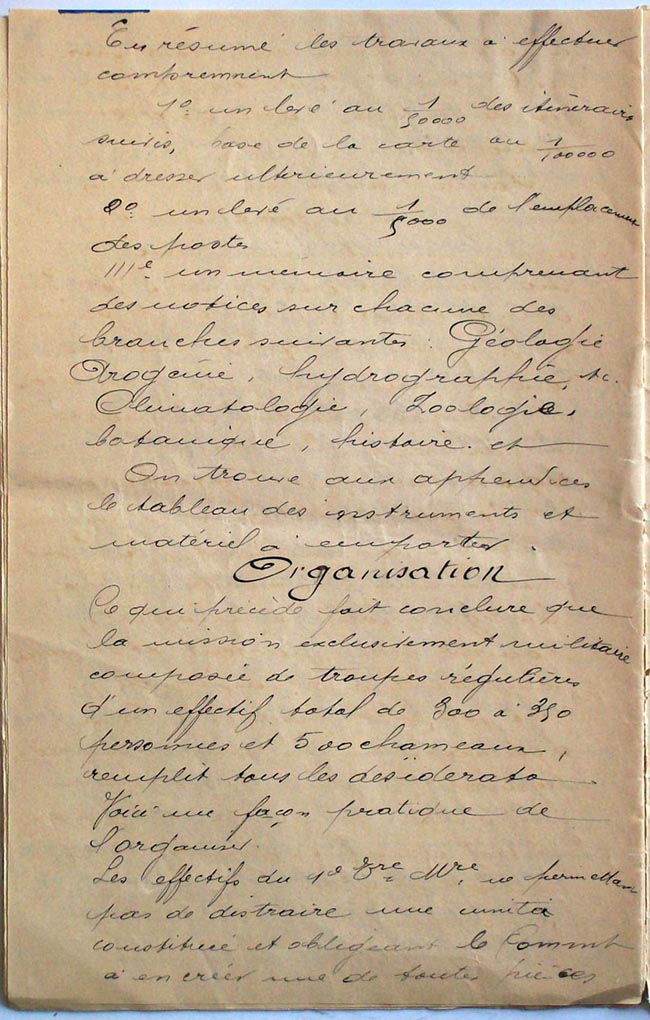 En résumé les travaux à effectuer
comprennent
1º un levé au 1/50000 des itinéraires
suivis, base de la carte au 1/100000
à dresser ultérieurement
2º un levé au 1/5000 de l'emplacement
des postes
IIIe un mémoire comprenant
des notices sur chacune des
branches suivantes : Géologie
Orogénie, hydrographie, &c.
Climatologie, Zoologie,
botanique, histoire. et
On trouve aux appendices
le tableau des instruments et
matériel à emporter.
Organisation
Ce qui précède fait conclure que
la mission exclusivement militaire
composée de troupes régulières
d'un effectif total de 300 à 350
personnes et 500 chameaux,
remplit tous les désidérata
Voici une façon pratique de
l'organiser.
Les effectifs du Mre. ne permettant
pas de distraire une unité
constituée et obligeant le Commt
à en créer une de toutes pièces